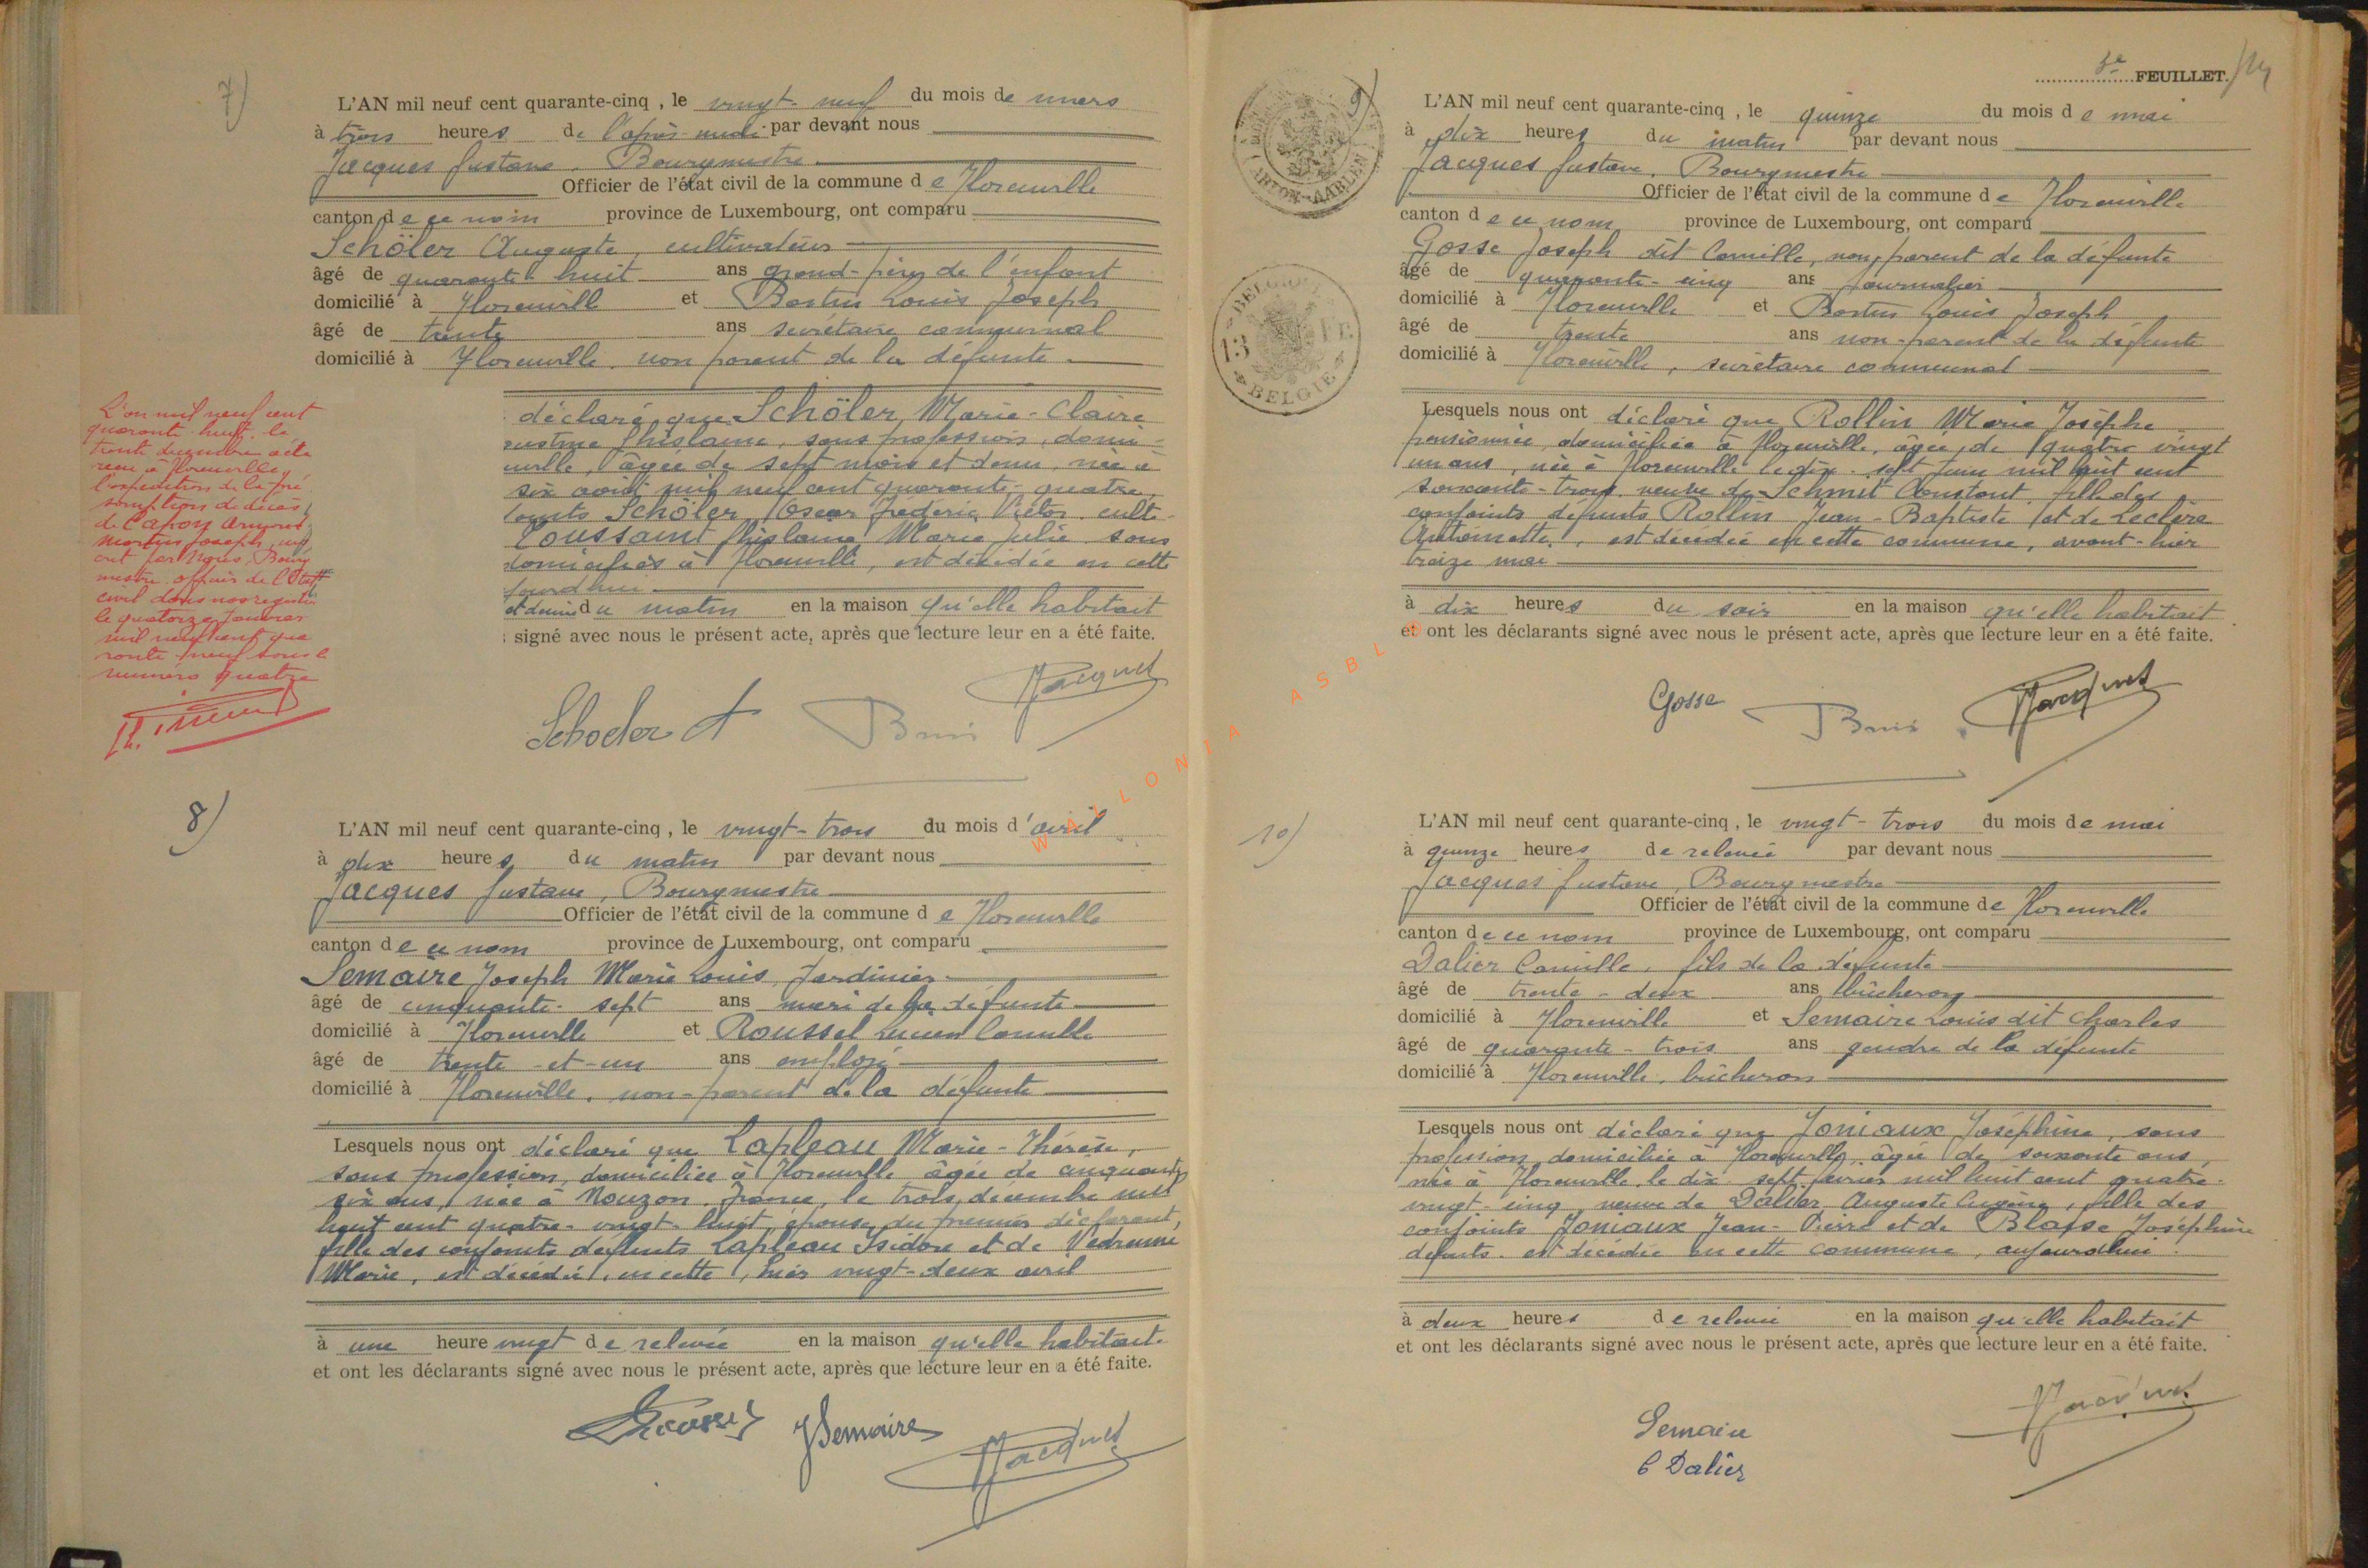 7)
L'AN mil neuf cent quarante-cinq, le vingt-neuf du mois de mars
à trois heures de l'après-midi par devant nous
Jacques Gustave, Bourgmestre
Officier de l'état civil de la commune de Florenville
canton de ce nom province de Luxembourg, ont comparu
Schöler Auguste, cultivateur
âgé de quarante huit ans grand-père de l'enfant
domicilié à Florenville et Bastin Louis Joseph
âgé de trente ans secrétaire communal
domicilié à Florenville, non parent de la défunte
L'an mil neuf cent
quarante huit, le
trente décembre acte
reçu à Florenville,
l'expédition de la pré
somption de décès
de Capon Armand
Martin Joseph,
par Nous, Bourg
mestre officier de l'Etat
civil dans nos registres
le quatorze Janvier
mil neuf cent qua
rante neuf sous le
numéro quatre
déclaré que Schöler Marie-Claire
Ghislaine, sans profession, domi-
ville, âgée de sept mois et demi, née à
six août mil neuf cent quarante-quatre,
joints Schöler Oscar Frédéric Victor, culti-
Toussaint Ghislaine Marie Julie sans
domiciliés à Florenville, est décédée en cette
jourd'hui
et demie du matin en la maison qu'elle habitait
signé avec nous le présent acte, après que lecture leur en a été faite.
Schoeler A Jacques
8)
L'AN mil neuf cent quarante-cinq, le vingt-trois du mois d'avril
à dix heures du matin par devant nous
Jacques Gustave, Bourgmestre
Officier de l'état civil de la commune de Florenville
canton de ce nom province de Luxembourg, ont comparu
Semaire Joseph Marie Louis, Jardinier
âgé de cinquante-sept ans mari de la défunte
domicilié à Florenville et Roussel Lucien Camille
âgé de trente-et-un ans employé
domicilié à Florenville, non-parent de la défunte
Lesquels nous ont déclaré que Lapleau Marie-Thérèse,
sans profession, domiciliée à Florenville âgée de cinquante
six ans, née à Nouzon, France, le trois décembre mil
huit cent quatre-vingt-huit, épouse du premier déclarant,
fille des conjoints défunts Lapleau Isidore et de
Marie, est décédée, en cette, hier vingt-deux avril
à une heure vingt de relevée en la maison qu'elle habitait.
et ont les déclarants signé avec nous le présent acte, après que lecture leur en a été faite.
JSemaire Jacques
WALLONIA ASBL
5e FEUILLET.
ARLON-AARLEN
BELGIQUE
13 Fr.
BELGIE
9)
L'AN mil neuf cent quarante-cinq, le quinze du mois de mai
à dix heures du matin par devant nous
Jacques Gustave, Bourgmestre
Officier de l'état civil de la commune de Florenville
canton de ce nom province de Luxembourg, ont comparu
Gosse Joseph dit Camille, non parent de la défunte
âgé de quarante-cinq ans Journalier
domicilié à Florenville et Bastin Louis Joseph
âgé de trente ans non-parent de la défunte
domicilié à Florenville, secrétaire communal
Lesquels nous ont déclaré que Rollin Marie Josèphe
pensionnée, domiciliée à Florenville, âgée de quatre vingt
un ans, née à Florenville le dix-sept Juin mil huit cent
soixante-trois, veuve de Schmit Constant, fille des
conjoints défunts Rollin Jean-Baptiste et de Leclère
Antoinette, est décédée en cette commune, avant-hier
treize mai
à dix heures du soir en la maison qu'elle habitait
et ont les déclarants signé avec nous le présent acte, après que lecture leur en a été faite.
Gosse Jacques
10)
L'AN mil neuf cent quarante-cinq, le vingt-trois du mois de mai
à quinze heures de relevée par devant nous
Jacques Gustave, Bourgmestre
Officier de l'état civil de la commune de Florenville
canton de ce nom province de Luxembourg, ont comparu
Dalier Camille, fils de la défunte
âgé de trente-deux ans bûcheron
domicilié à Florenville et Semaire Louis dit Charles
âgé de quarante-trois ans gendre de la défunte
domicilié à Florenville, bûcheron
Lesquels nous ont déclaré que Joniaux Joséphine, sans
profession, domiciliée à Florenville, âgée de soixante ans,
née à Florenville le dix-sept février mil huit cent quatre-
vingt-cinq, veuve de Dalier Auguste Eugène, fille des
conjoints Joniaux Jean-Pierre et de Blaise Joséphine
défunts, est décédée en cette commune, aujourd'hui
à deux heures de relevée en la maison qu'elle habitait
et ont les déclarants signé avec nous le présent acte, après que lecture leur en a été faite.
Jacques
Semaire
C Dalier